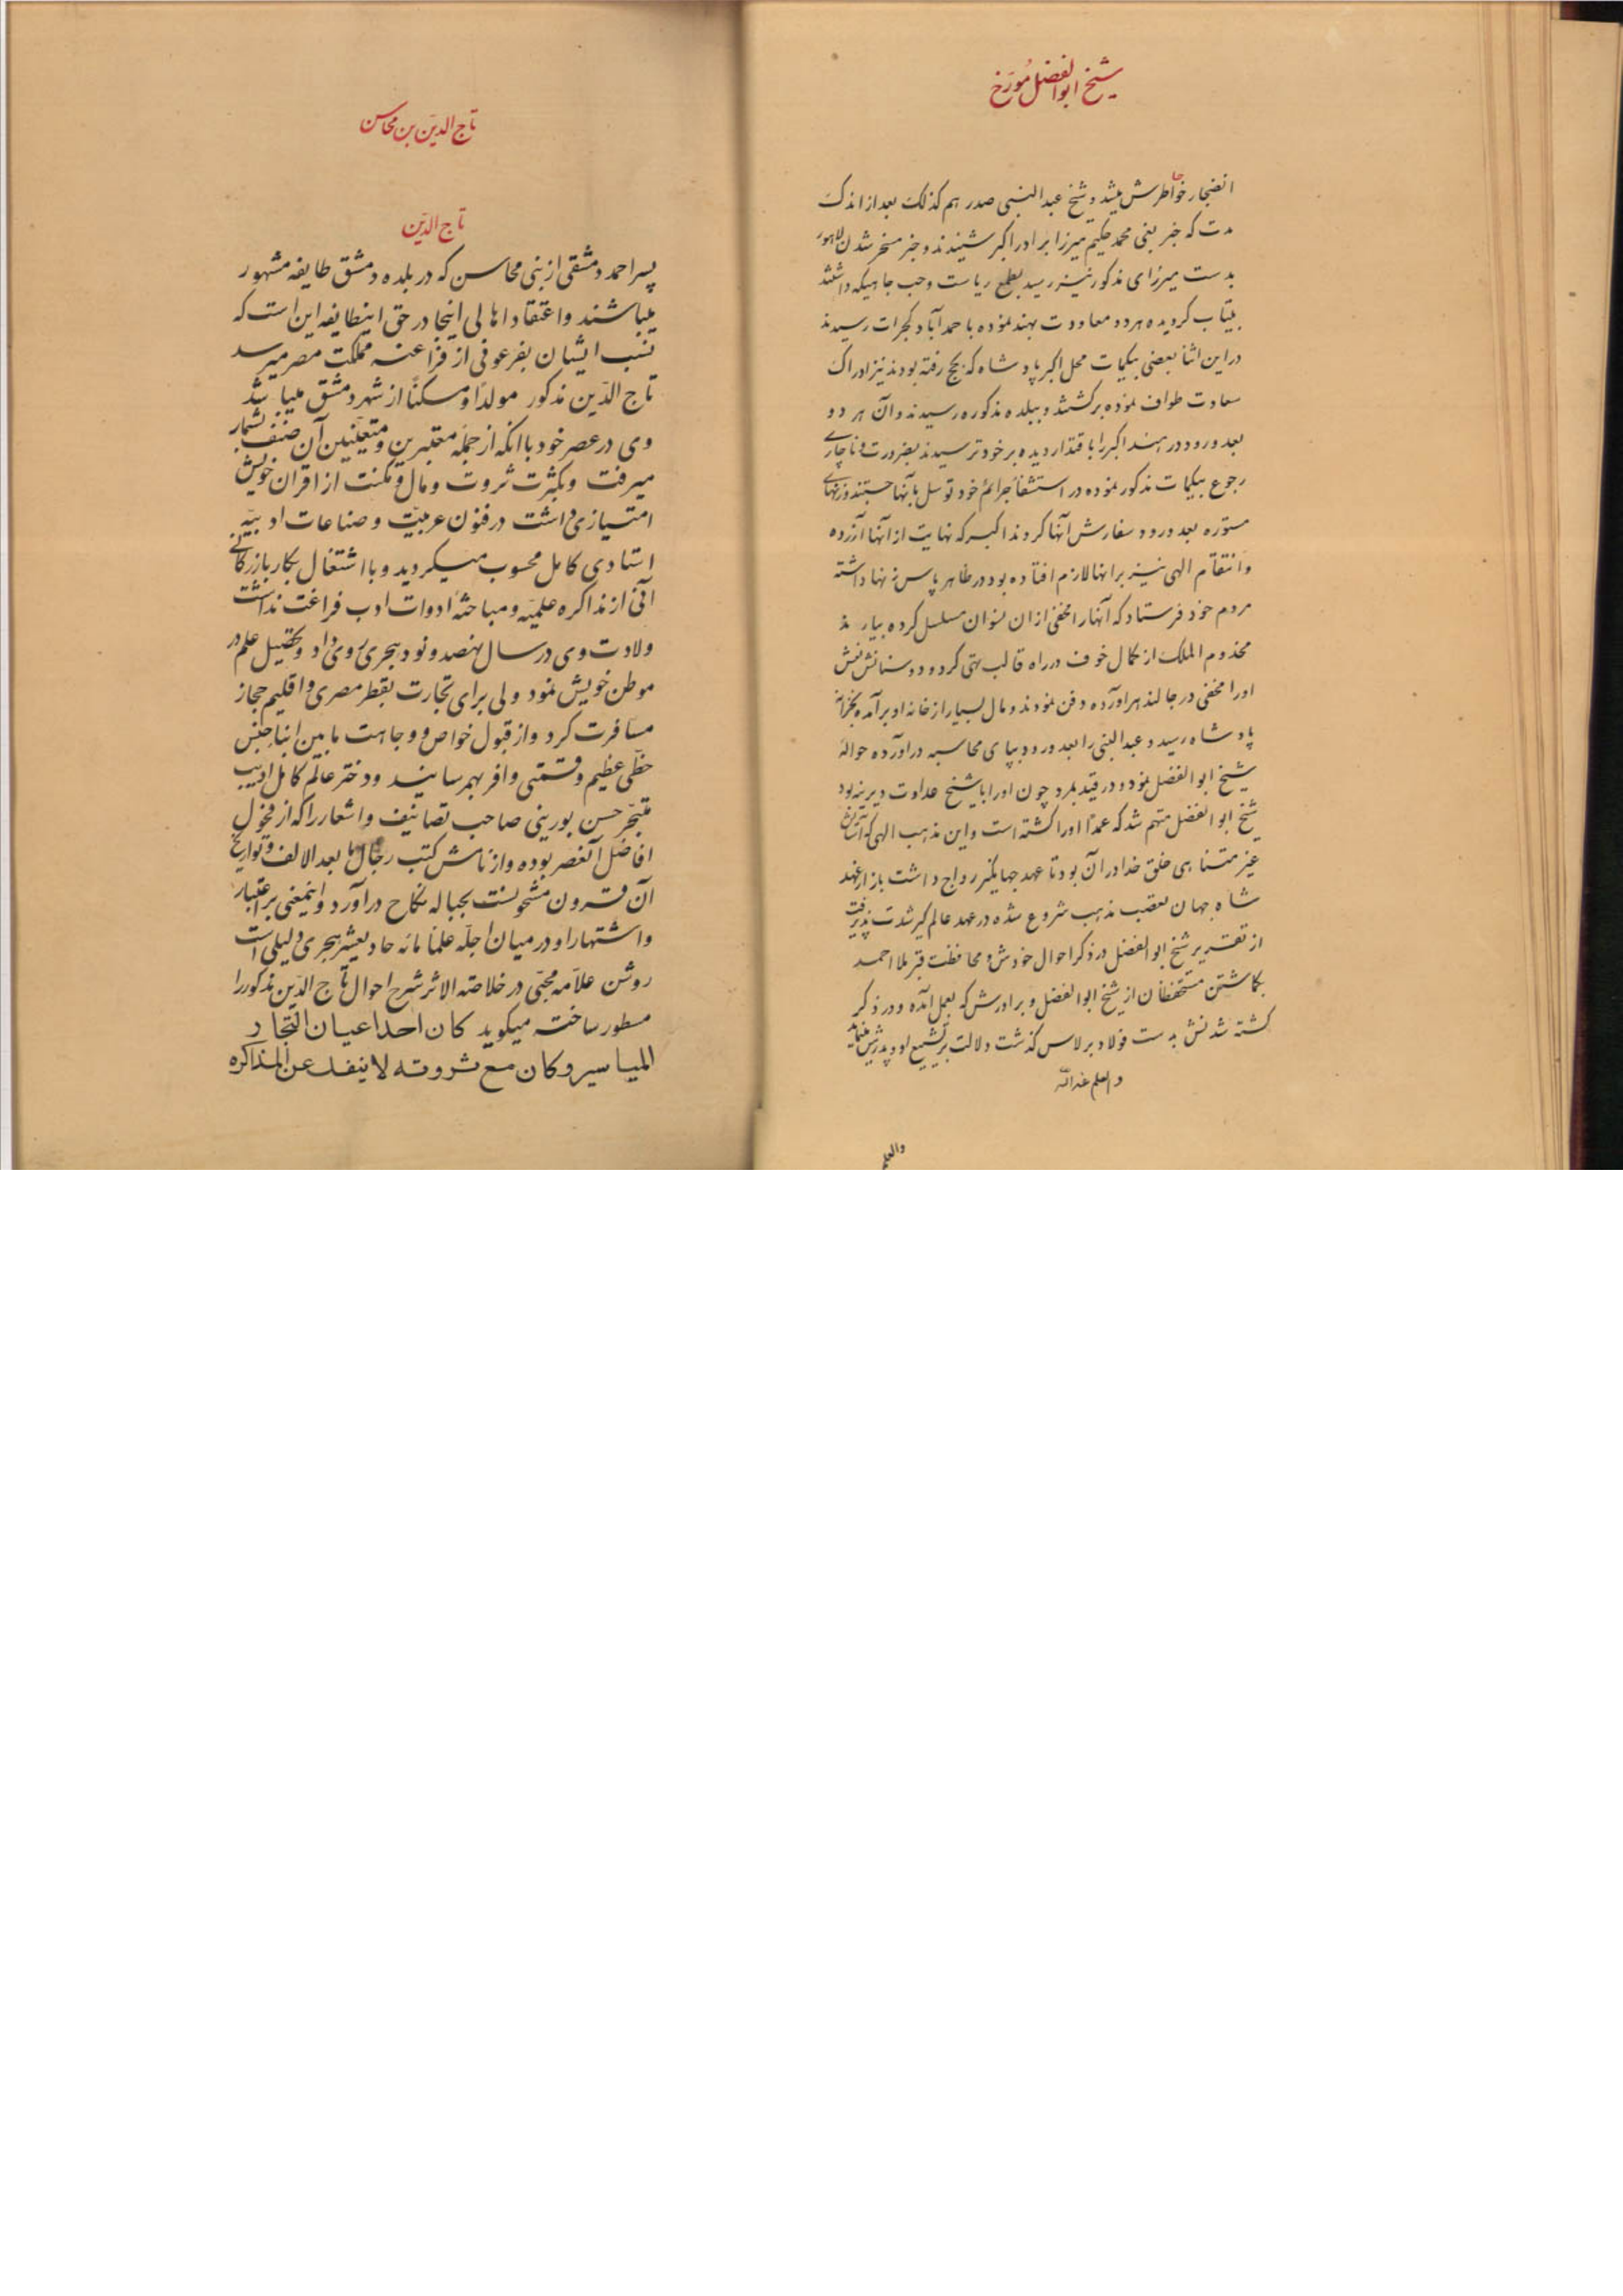 شیخ ابوالفضل مورّخ
انضجار خواطرش میشد و شیخ عبدالنبی صدر هم کذلک بعد از اندک
مدت که خبر بغی محمد حکیم میرزا برادر اکبر شنیدند و خبر مسخر شدن لاهور
بدست میرزای مذکور نیز رسید بطمع ریاست و حب جاهیکه داشتند
بیتاب گردیده هر دو معاودت بهند نموده باحمدآباد گجرات رسیدند
در این اثنا بعضی بیگمات محل اکبر پادشاه که بحج رفته بودند نیز ادراک
سعادت طواف نموده برگشتند و ببلده مذکوره رسیدند و آن هر دو
بعد ورود در هند اکبر را باقتدار دیده بر خود ترسیدند بضرورت و ناچاری
رجوع ببیگمات مذکور نموده در استشفاء جرائم خود توسل بآنها جستند و زنهای
مستوره بعد ورود سفارش آنها کردند اکبر که نهایت از آنها آزرده
و انتقام الهی نیز بر انها لازم افتاده بود در ظاهر پاس زنها داشته
مردم خود فرستاد که آنها را مخفی از ان نسوان مسلسل کرده بیارند
مخدوم الملک از کمال خوف در راه قالب تهی کرد و دوستانش نعش
اورا مخفی در جالندهر اورده دفن نمودند و مال بسیار از خانه او برآمده بخزانه
پادشاه رسید و عبدالنبی را بعد ورود بپای محاسبه دراورده حواله
شیخ ابوالفضل نمود و در قید بمرد چون اورا با شیخ عداوت دیرینه بود
شیخ ابوالفضل متهم شد که عمدًا اورا کشته است و این مذهب الهی که آسایش
غیر متناهی خلق خدا در آن بود تا عهد جهانگیر رواج داشت باز از عهد
شاه جهان تعصب مذهب شروع شده در عهد عالمگیر شدت پذیرفت
از تقریر شیخ ابوالفضل در ذکر احوال خودش و محافظت قبر ملا احمد
بگماشتن مستحفظان از شیخ ابوالفضل و برادرش که بعمل آمده و در ذکر
کشته شدنش بدست فولاد برلاس گذشت دلالت بر تشیع او و پدرش مینماید
و العلم عندالله
والعلم
تاج الدّین بن محاسن
تاج الدّین
پسر احمد دمشقی از بنی محاسن که در بلده دمشق طایفه مشهور
میباشند و اعتقاد اهالی اینجا در حق اینطایفه این است که
نسب ایشان بفرعونی از فراعنه مملکت مصر میرسد
تاج الدّین مذکور مولدًا و مسکنًا از شهر دمشق میباشد
وی در عصر خود با انکه از جمله معتبرین و متعیّنین آن صنف بشمار
میرفت و بکثرت ثروت و مال و مکنت از اقران خویش
امتیازی داشت در فنون عربیّت و صناعات ادبیّه
استادی کامل محسوب میگردید و با اشتغال بکار بازرگانی
آنی از مذاکره علمیّه و مباحثهٔ ادوات ادب فراغت نداشت
ولادت وی در سال نهصد و نود هجری روی داد و تحصیل علم در
موطن خویش نمود ولی برای تجارت بقطر مصری و اقلیم حجاز
مسافرت کرد و از قبول خواص و وجاهت مابین ابناء جنس
حظّی عظیم و قسمتی وافر بهمرسانید و دختر عالم کامل ادیب
متبحّر حسن بورینی صاحب تصانیف و اشعار را که از فحول
افاضل آنعصر بوده و از نامش کتب رجال ما بعد الالف و تواریخ
آن قرون مشحونست بحباله نکاح درآورد و اینمعنی بر اعتبار
و اشتهار او در میان اجلّه علماء مائه حادیعشر هجری دلیلی است
روشن علاّمه محبّی در خلاصة الاثر شرح احوال تاج الدّین مذکور را
مسطور ساخته میگوید کان احد اعیان التجار
المیاسیر و کان مع ثروته لاینفک عن المذاکره